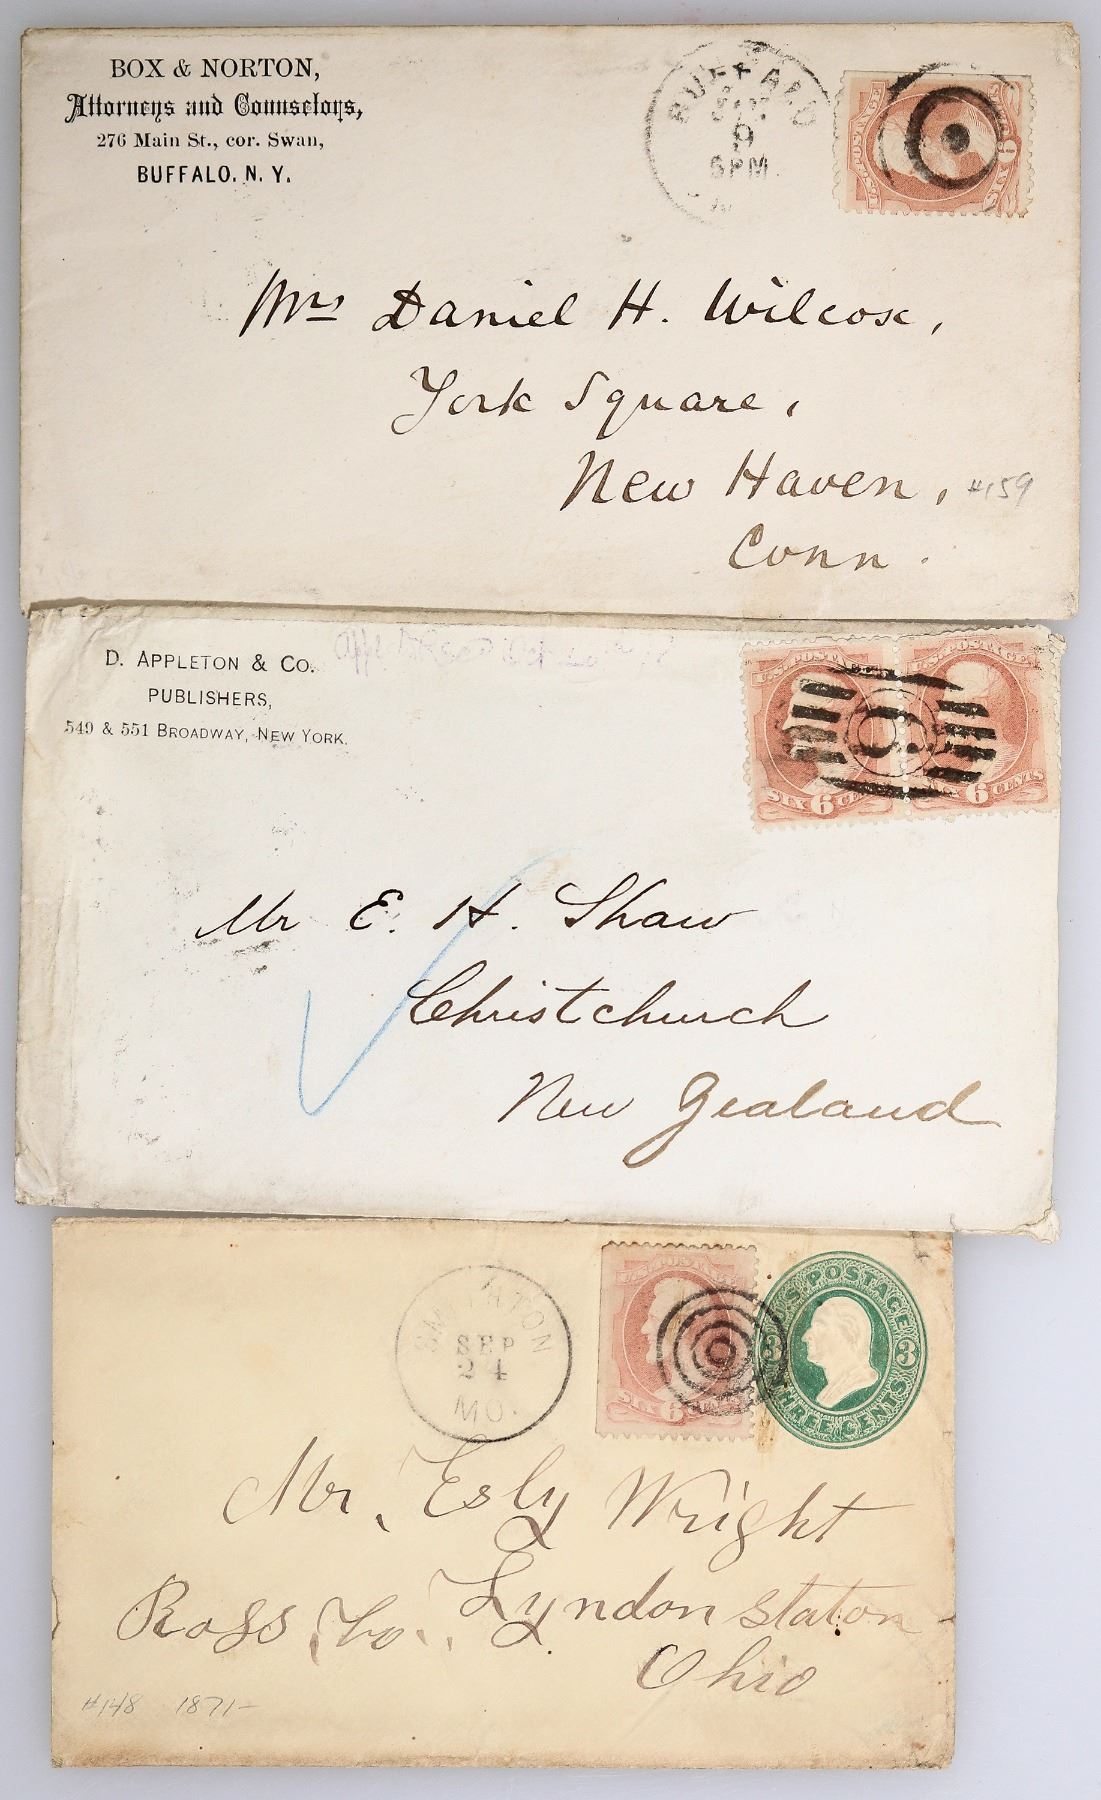 BOX & NORTON,
Attorneys and Counselors,
276 Main St., cor. Swan,
BUFFALO, N. Y.
BUFFALO
9
6PM
Mrs Daniel H. Wilcox,
York Square,
New Haven,
#159
Conn.
D. APPLETON & CO.
PUBLISHERS,
549 & 551 BROADWAY, NEW YORK.
U.S. POSTAGE
SIX 6 CENTS
9
U.S. POSTAGE
SIX 6 CENTS
Mr E. H. Shaw
Christchurch
New Zealand
SMITHTON
SEP
24
MO.
U.S. POSTAGE
SIX 6 CENTS
U.S. POSTAGE
3 3
THREE CENTS
Mr. Esly Wright
Ross Co., Lyndon Staton
Ohio
#148 1871-